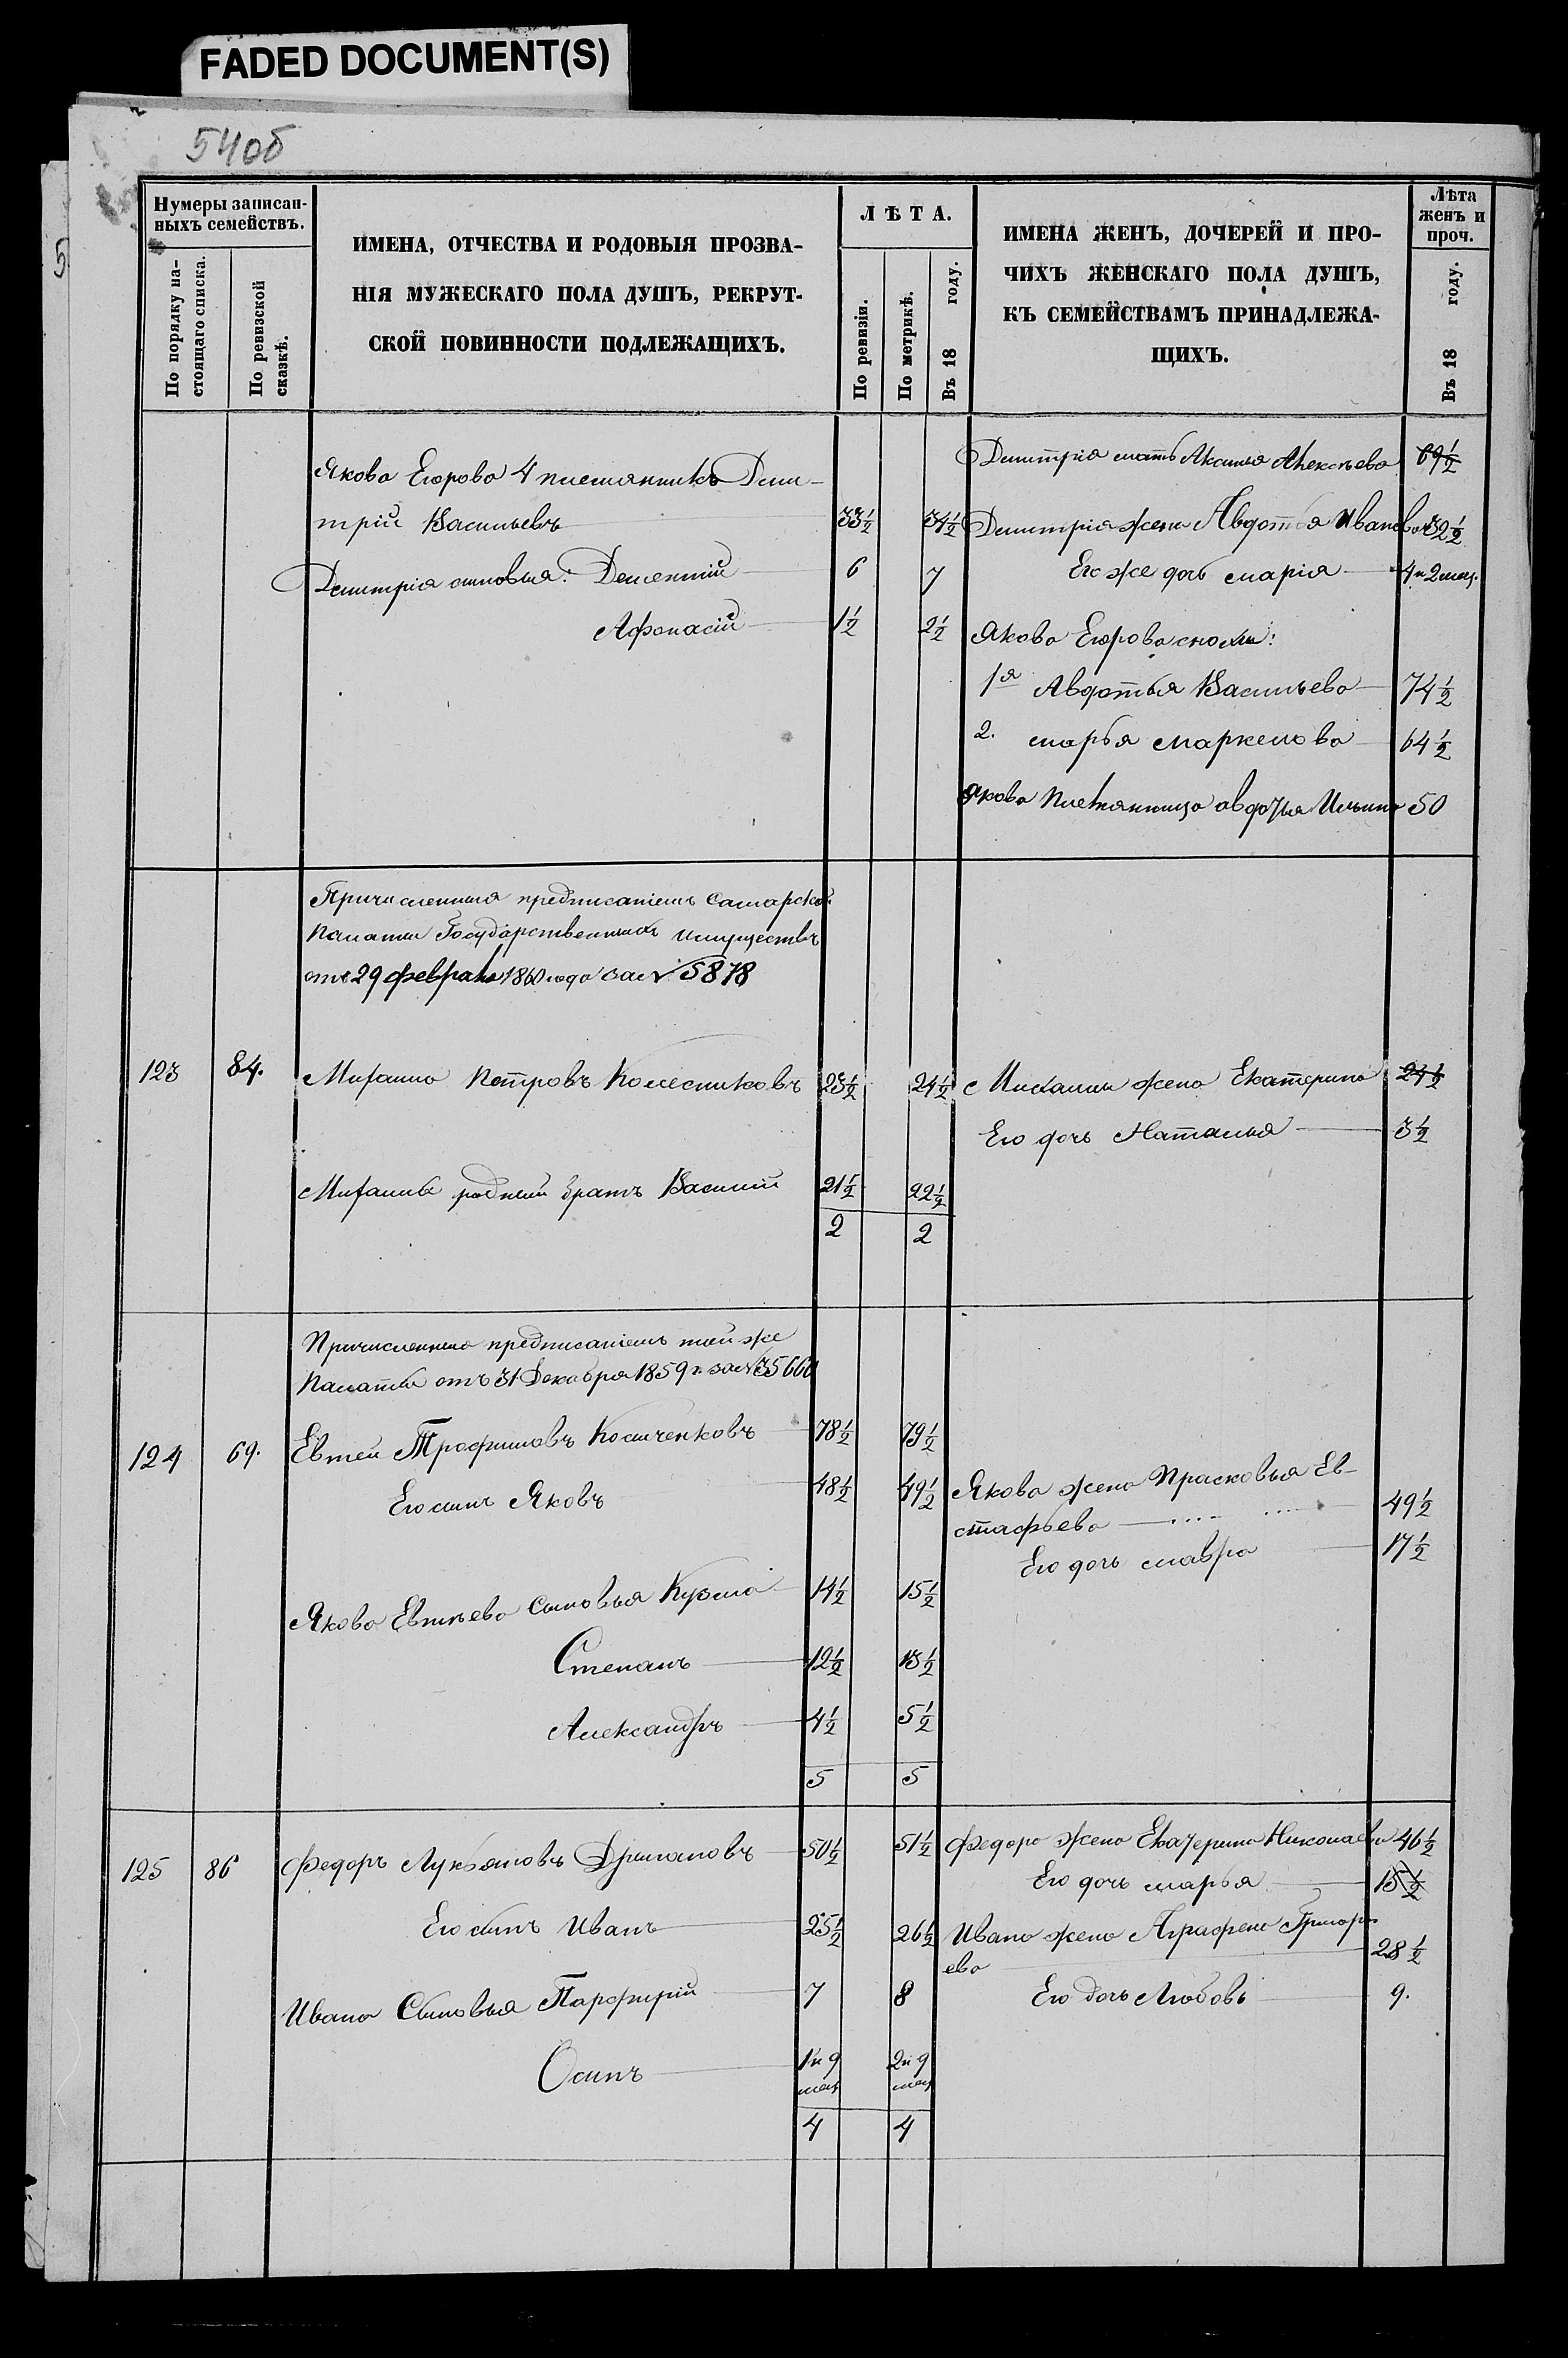 FADED DOCUMENT(S)
54об
5
Нумеры записан-
ныхъ семействъ.
По порядку на-
стоящаго списка.
По ревизской
сказкѣ.
ИМЕНА, ОТЧЕСТВА И РОДОВЫЯ ПРОЗВА-
НІЯ МУЖЕСКАГО ПОЛА ДУШЪ, РЕКРУТ-
СКОЙ ПОВИННОСТИ ПОДЛЕЖАЩИХЪ.
ЛѢТА.
По ревизіи.
По метрикѣ.
Въ 18 году.
ИМЕНА ЖЕНЪ, ДОЧЕРЕЙ И ПРО-
ЧИХЪ ЖЕНСКАГО ПОЛА ДУШЪ,
КЪ СЕМЕЙСТВАМЪ ПРИНАДЛЕЖА-
ЩИХЪ.
Лѣта
женъ и
проч.
Въ 18 году.
Якова Егорова 4 племянникъ Дми-
трій Васильевъ 33½ 34½
Дмитрія сыновья: Дементій 6 7
Афонасій 1½ 2½
Дмитрія мать Аксинья Алексѣева 69½
Дмитрія жена Авдотья Иванова 32½
Его же дочь Марія 4 и 2 мец.
Якова Егорова снохи:
1я Авдотья Васильева 74½
2. Марья Маркелова 64½
Якова племянница Авдотья Ильина 50
Причисленныя предписаніемъ Самарской
Палаты Государственныхъ Имуществъ
отъ 29 февраля 1860 года за № 5878
123 84. Михайло Петровъ Колесниковъ 23½ 24½ Михайлы жена Екатерина 24½
Его дочь Наталья 3½
Михайлы родный братъ Василій 21½ 22½
2 2
Причисленные предписаніемъ той же
Палаты отъ 31 Декабря 1859 г. за № 35660
124 69. Евтей Трофимовъ Косиченковъ 78½ 79½
Его сынъ Яковъ 48½ 49½
Якова жена Прасковья Ев-
стафьева 49½
Его дочь Мавра 17½
Якова Евтѣева Сыновья Кузьма 14½ 15½
Степанъ 12½ 13½
Александръ 4½ 5½
5 5
125 86 Федоръ Лукьяновъ 50½ 51½ Федора жена Екатерина Николаева 46½
Его дочь Марья 15½
Его сынъ Иванъ 25½ 26½ Ивана жена Аграфена Григорь-
ева 28½
Ивана Сыновья Парфирій 7 8 Его дочь Любовь 9.
Осипъ 1 и 9 2 и 9
мец мец
4 4